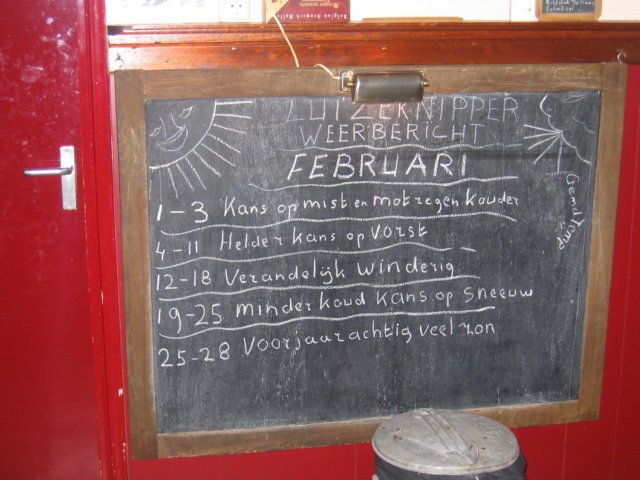 WEERBERICHT
FEBRUARI
1-3 Kans op mist en motregen kouder
4-11 Helder kans op vorst
12-18 Verandelijk winderig
19-25 minder koud kans op sneeuw
25-28 voorjaarachtig veel zon